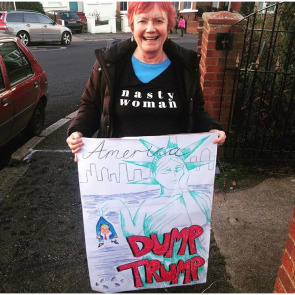 nasty
woman
America
DUMP
TRUMP